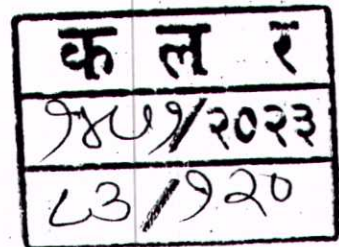 क ल र
१४५१/२०२३
८३/१२०